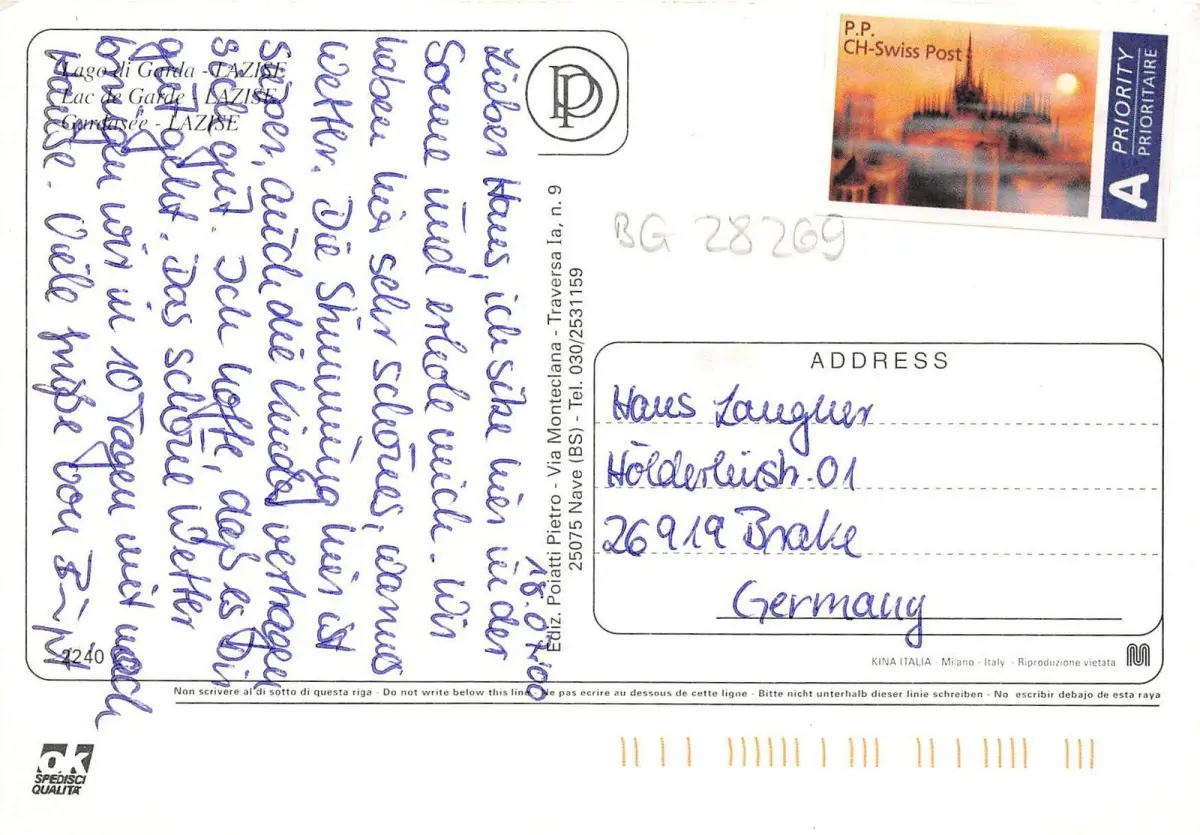 Lago di Garda - LAZISE
Lac de Garde - LAZISE
Gardasée - LAZISE
P.P.
CH-Swiss Post
A PRIORITY
PRIORITAIRE
BG 28269
18.07.00
Lieber Hans, ich sitze hier in der
Sonne und erhole mich. Wir
haben hier sehr schönes, warmes
Wetter. Die Stimmung hier ist
super, auch die Kinder vertragen
sich gut. Ich hoffe, daß es Dir
gut geht. Das schöne Wetter
bringen wir in 10 Tagen mit nach
Hause. Viele Grüße von
Ediz. Poiatti Pietro - Via Monteclana - Traversa Ia, n. 9
25075 Nave (BS) - Tel. 030/2531159
ADDRESS
Hans Langner
Hölderlinstr. 01
26919 Brake
Germany
2240
KINA ITALIA - Milano - Italy - Riproduzione vietata
Non scrivere al di sotto di questa riga - Do not write below this line - Ne pas écrire au dessous de cette ligne - Bitte nicht unterhalb dieser linie schreiben - No escribir debajo de esta raya
ok
SPEDISCI
QUALITA'